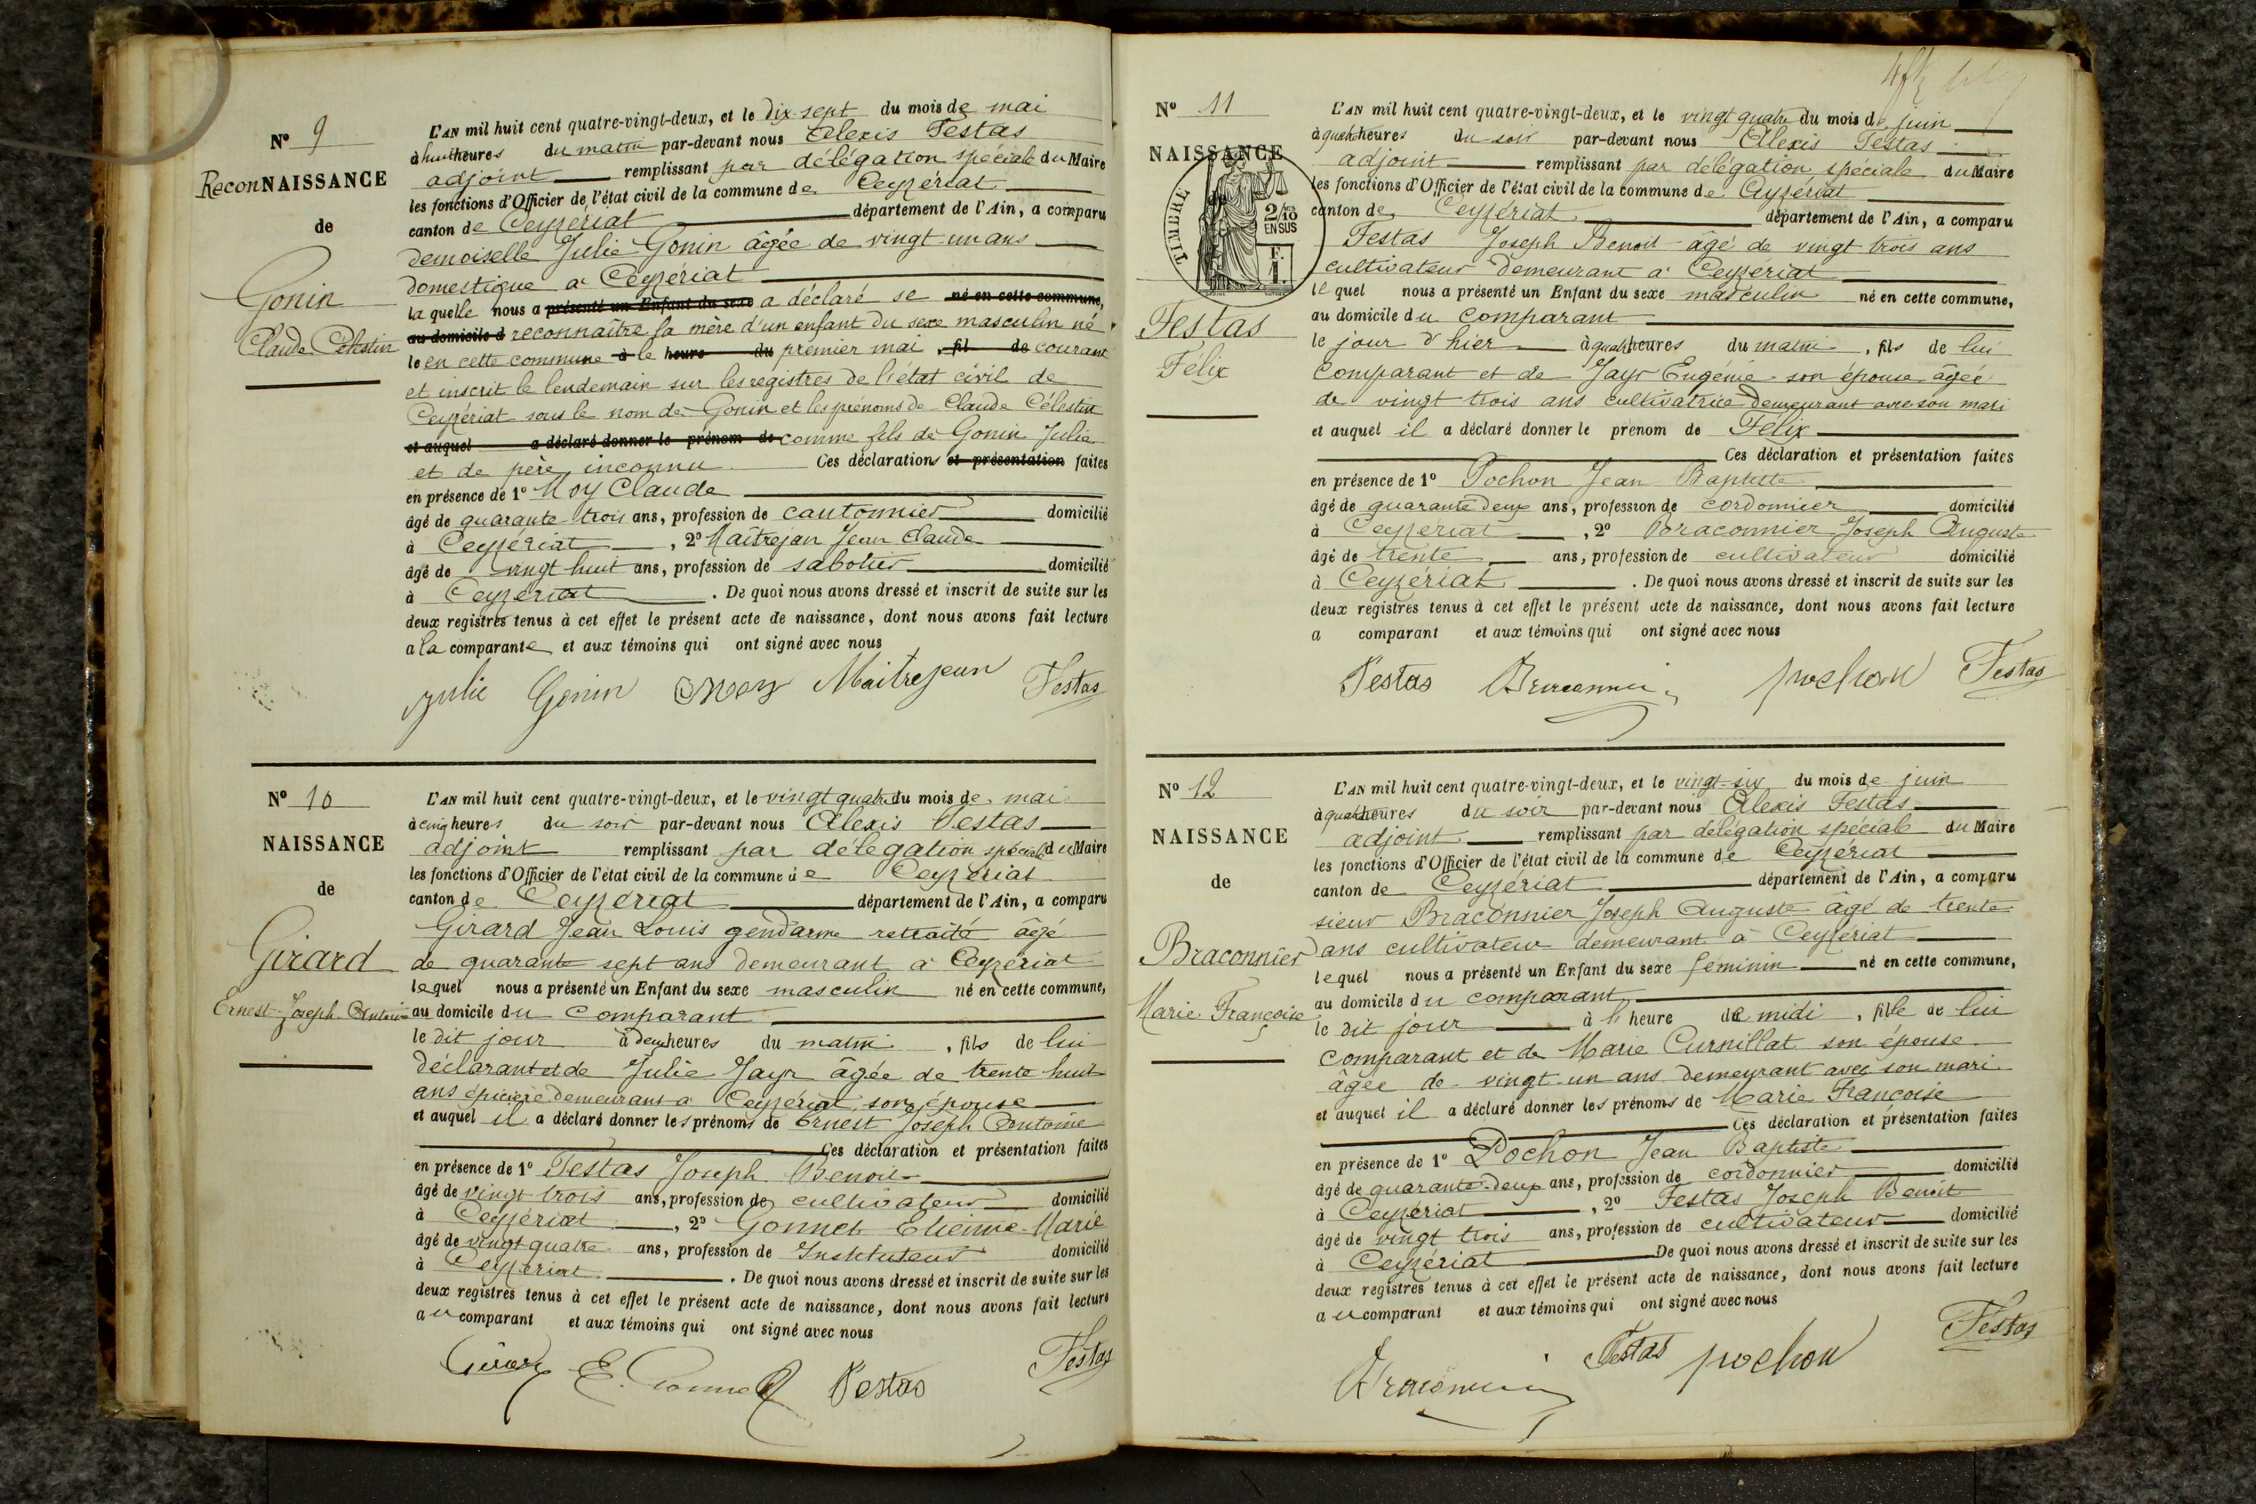 N° 9
ReconNAISSANCE
de
Gonin
Claude Célestin
L'AN mil huit cent quatre-vingt-deux, et le dix-sept du mois de mai
à huit heures du matin par-devant nous Alexis Festas
adjoint remplissant par délégation spéciale du Maire
les fonctions d'Officier de l'état civil de la commune de Ceyzériat
canton de Ceyzériat département de l'Ain, a comparu
demoiselle Julie Gonin âgée de vingt un ans
domestique à Ceyzériat
la quelle nous a présenté un Enfant du sexe a déclaré se né en cette commune,
au domicile d reconnaître la mère d'un enfant du sexe masculin né
le en cette commune à le heure du premier mai , fil de courant
et inscrit le lendemain sur les registres de l'état civil de
Ceyzériat sous le nom de Gonin et les prénoms de Claude Célestin
et auquel a déclaré donner le prénom de comme fils de Gonin Julie
et de père inconnu Ces déclarations et présentation faites
en présence de 1° Moy Claude
âgé de quarante trois ans, profession de cantonnier domicilié
à Ceyzériat , 2° Maîtrejan Jean Claude
âgé de vingt huit ans, profession de sabotier domicilié
à Ceyzériat . De quoi nous avons dressé et inscrit de suite sur les
deux registres tenus à cet effet le présent acte de naissance, dont nous avons fait lecture
a la comparante et aux témoins qui ont signé avec nous
Julie Gonin Moy Maitrejean Festas
N° 10
NAISSANCE
de
Girard
Ernest Joseph Antoine
L'AN mil huit cent quatre-vingt-deux, et le vingt quatre du mois de mai
à cinq heures du soir par-devant nous Alexis Festas
adjoint remplissant par délégation spéciale du Maire
les fonctions d'Officier de l'état civil de la commune de Ceyzériat
canton de Ceyzériat département de l'Ain, a comparu
Girard Jean Louis gendarme retraité âgé
de quarante sept ans demeurant à Ceyzériat
lequel nous a présenté un Enfant du sexe masculin né en cette commune,
au domicile du comparant
le dit jour à deux heures du matin , fils de lui
déclarant et de Julie Jayr âgée de trente huit
ans épicière demeurant à Ceyzériat son épouse
et auquel il a déclaré donner les prénoms de Ernest Joseph Antoine
Ces déclaration et présentation faites
en présence de 1° Festas Joseph Benoit
âgé de vingt trois ans, profession de cultivateur domicilié
à Ceyzériat , 2° Gonnet Etienne Marie
âgé de vingt quatre ans, profession de Instituteur domicilié
à Ceyzériat . De quoi nous avons dressé et inscrit de suite sur les
deux registres tenus à cet effet le présent acte de naissance, dont nous avons fait lecture
au comparant et aux témoins qui ont signé avec nous
Girard E. Gonnet Festas Festas
N° 11
NAISSANCE
de
TIMBRE
2/10 EN SUS
F. 1.
Festas
Félix
L'AN mil huit cent quatre-vingt-deux, et le vingt quatre du mois de juin
à quatre heures du soir par-devant nous Alexis Festas
adjoint remplissant par délégation spéciale du Maire
les fonctions d'Officier de l'état civil de la commune de Ceyzériat
canton de Ceyzériat département de l'Ain, a comparu
Festas Joseph Benoit âgé de vingt trois ans
cultivateur demeurant à Ceyzériat
le quel nous a présenté un Enfant du sexe masculin né en cette commune,
au domicile du comparant
le jour d'hier à quatre heures du matin , fils de lui
comparant et de Jayr Eugénie son épouse âgée
de vingt trois ans cultivatrice demeurant avec son mari
et auquel il a déclaré donner le prénom de Félix
Ces déclaration et présentation faites
en présence de 1° Pochon Jean Baptiste
âgé de quarante deux ans, profession de cordonnier domicilié
à Ceyzériat , 2° Braconnier Joseph Auguste
âgé de trente ans, profession de cultivateur domicilié
à Ceyzériat . De quoi nous avons dressé et inscrit de suite sur les
deux registres tenus à cet effet le présent acte de naissance, dont nous avons fait lecture
a comparant et aux témoins qui ont signé avec nous
Festas Braconnier pochon Festas
N° 12
NAISSANCE
de
Braconnier
Marie Françoise
L'AN mil huit cent quatre-vingt-deux, et le vingt-six du mois de juin
à quatre heures du soir par-devant nous Alexis Festas
adjoint remplissant par délégation spéciale du Maire
les fonctions d'Officier de l'état civil de la commune de Ceyzériat
canton de Ceyzériat département de l'Ain, a comparu
sieur Braconnier Joseph Auguste âgé de trente
ans cultivateur demeurant à Ceyzériat
lequel nous a présenté un Enfant du sexe féminin né en cette commune,
au domicile du comparant
le dit jour à l' heure de midi , fille de lui
comparant et de Marie Curnillat son épouse
âgée de vingt un ans demeurant avec son mari
et auquel il a déclaré donner les prénoms de Marie Françoise
Ces déclaration et présentation faites
en présence de 1° Pochon Jean Baptiste
âgé de quarante-deux ans, profession de cordonnier domicilié
à Ceyzériat , 2° Festas Joseph Benoit
âgé de vingt trois ans, profession de cultivateur domicilié
à Ceyzériat De quoi nous avons dressé et inscrit de suite sur les
deux registres tenus à cet effet le présent acte de naissance, dont nous avons fait lecture
au comparant et aux témoins qui ont signé avec nous
Braconnier Festas pochon Festas